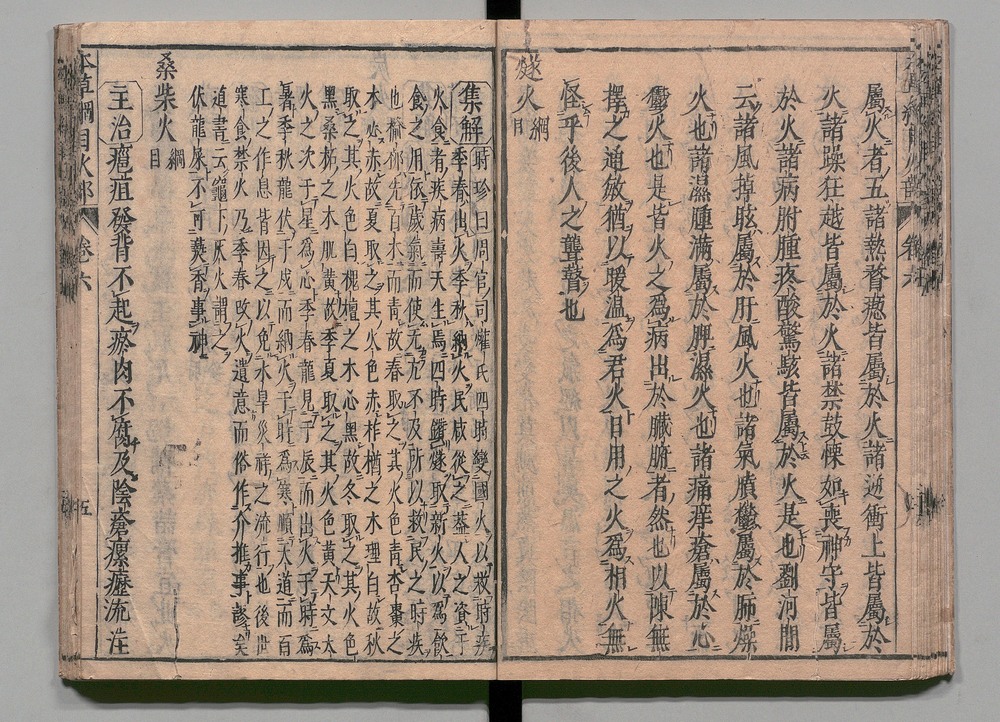 屬火者五諸熱瞀瘛皆屬於火諸逆衝上皆屬於
火諸躁狂越皆屬於火諸禁鼓慄如喪神守皆屬
於火諸病胕腫疼酸驚駭皆屬於火是也劉河間
云諸風掉眩屬於肝風火也諸氣膹鬱屬於肺燥
火也諸濕腫滿屬於脾濕火也諸痛痒瘡屬於心
鬱火也是皆火之爲病出於臟腑者然也以陳無
擇之通敏猶以暖温爲君火日用之火爲相火無
怪乎後人之聾瞽也
燧火綱目
集解時珍曰周官司爟氏四時變國火以救時疾
季春出火季秋納火民咸從之蓋人之資于
火食者疾病壽夭生焉四時鑽燧取新火以爲飲
食之用依歲氣而使无亢不及所以救民之時疾
也榆柳先百木而青故春取之其火色青杏棗之
木心赤故夏取之其火色赤柞楢之木理白故秋
取之其火色白槐檀之木心黑故冬取之其火色
黑桑柘之木肌黄故季夏取之其火色黄天文大
火之次于星爲心季春龍見于辰而出火于時爲
暑季秋龍伏于戌而納火于時爲寒順天道而百
工之作息皆因之以免水旱災祥之流行也後世
寒食禁火乃季春改火遺意而俗作介推事謬矣
道書云竈下灰火謂之
伏龍屎不可爇香事神
桑柴火綱目
主治癰疽發背不起瘀肉不腐及陰瘡瘰癧流注
本草綱目火部 卷六 五